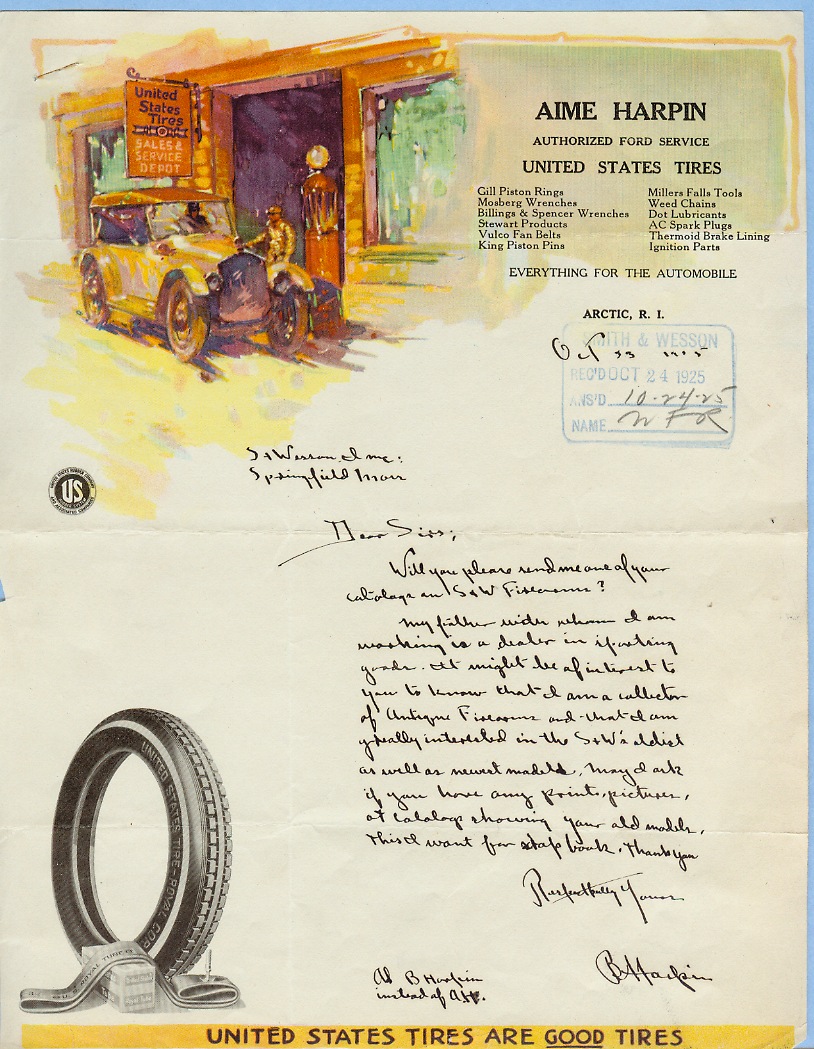 United
States
Tires
SALES &
SERVICE
DEPOT
AIME HARPIN
AUTHORIZED FORD SERVICE
UNITED STATES TIRES
Gill Piston Rings
Mosberg Wrenches
Billings & Spencer Wrenches
Stewart Products
Vulco Fan Belts
King Piston Pins
Millers Falls Tools
Weed Chains
Dot Lubricants
AC Spark Plugs
Thermoid Brake Lining
Ignition Parts
EVERYTHING FOR THE AUTOMOBILE
ARCTIC, R. I.
Oct 23 1925
SMITH & WESSON
REC'D OCT 24 1925
ANS'D 10-24-25
NAME WFR
S & Wesson Inc:
Springfield Mass
US
Dear Sirs;
Will you please send me one of your
catalogs on S&W Firearms?
My father with whom I am
working is a dealer in sporting
goods. It might be of interest to
you to know that I am a collector
of Antique Firearms and that I am
greatly interested in the S&W's oldest
as well as newest models. May I ask
if you have any prints, pictures,
or catalogs showing your old models.
This I want for scrap book. Thank you
Respectfully Yours
B Harpin
Ad B Harpin
instead of A.H.
UNITED STATES TIRE - ROYAL COR
U.S. ROYAL TUBE
UNITED STATES TIRES ARE GOOD TIRES